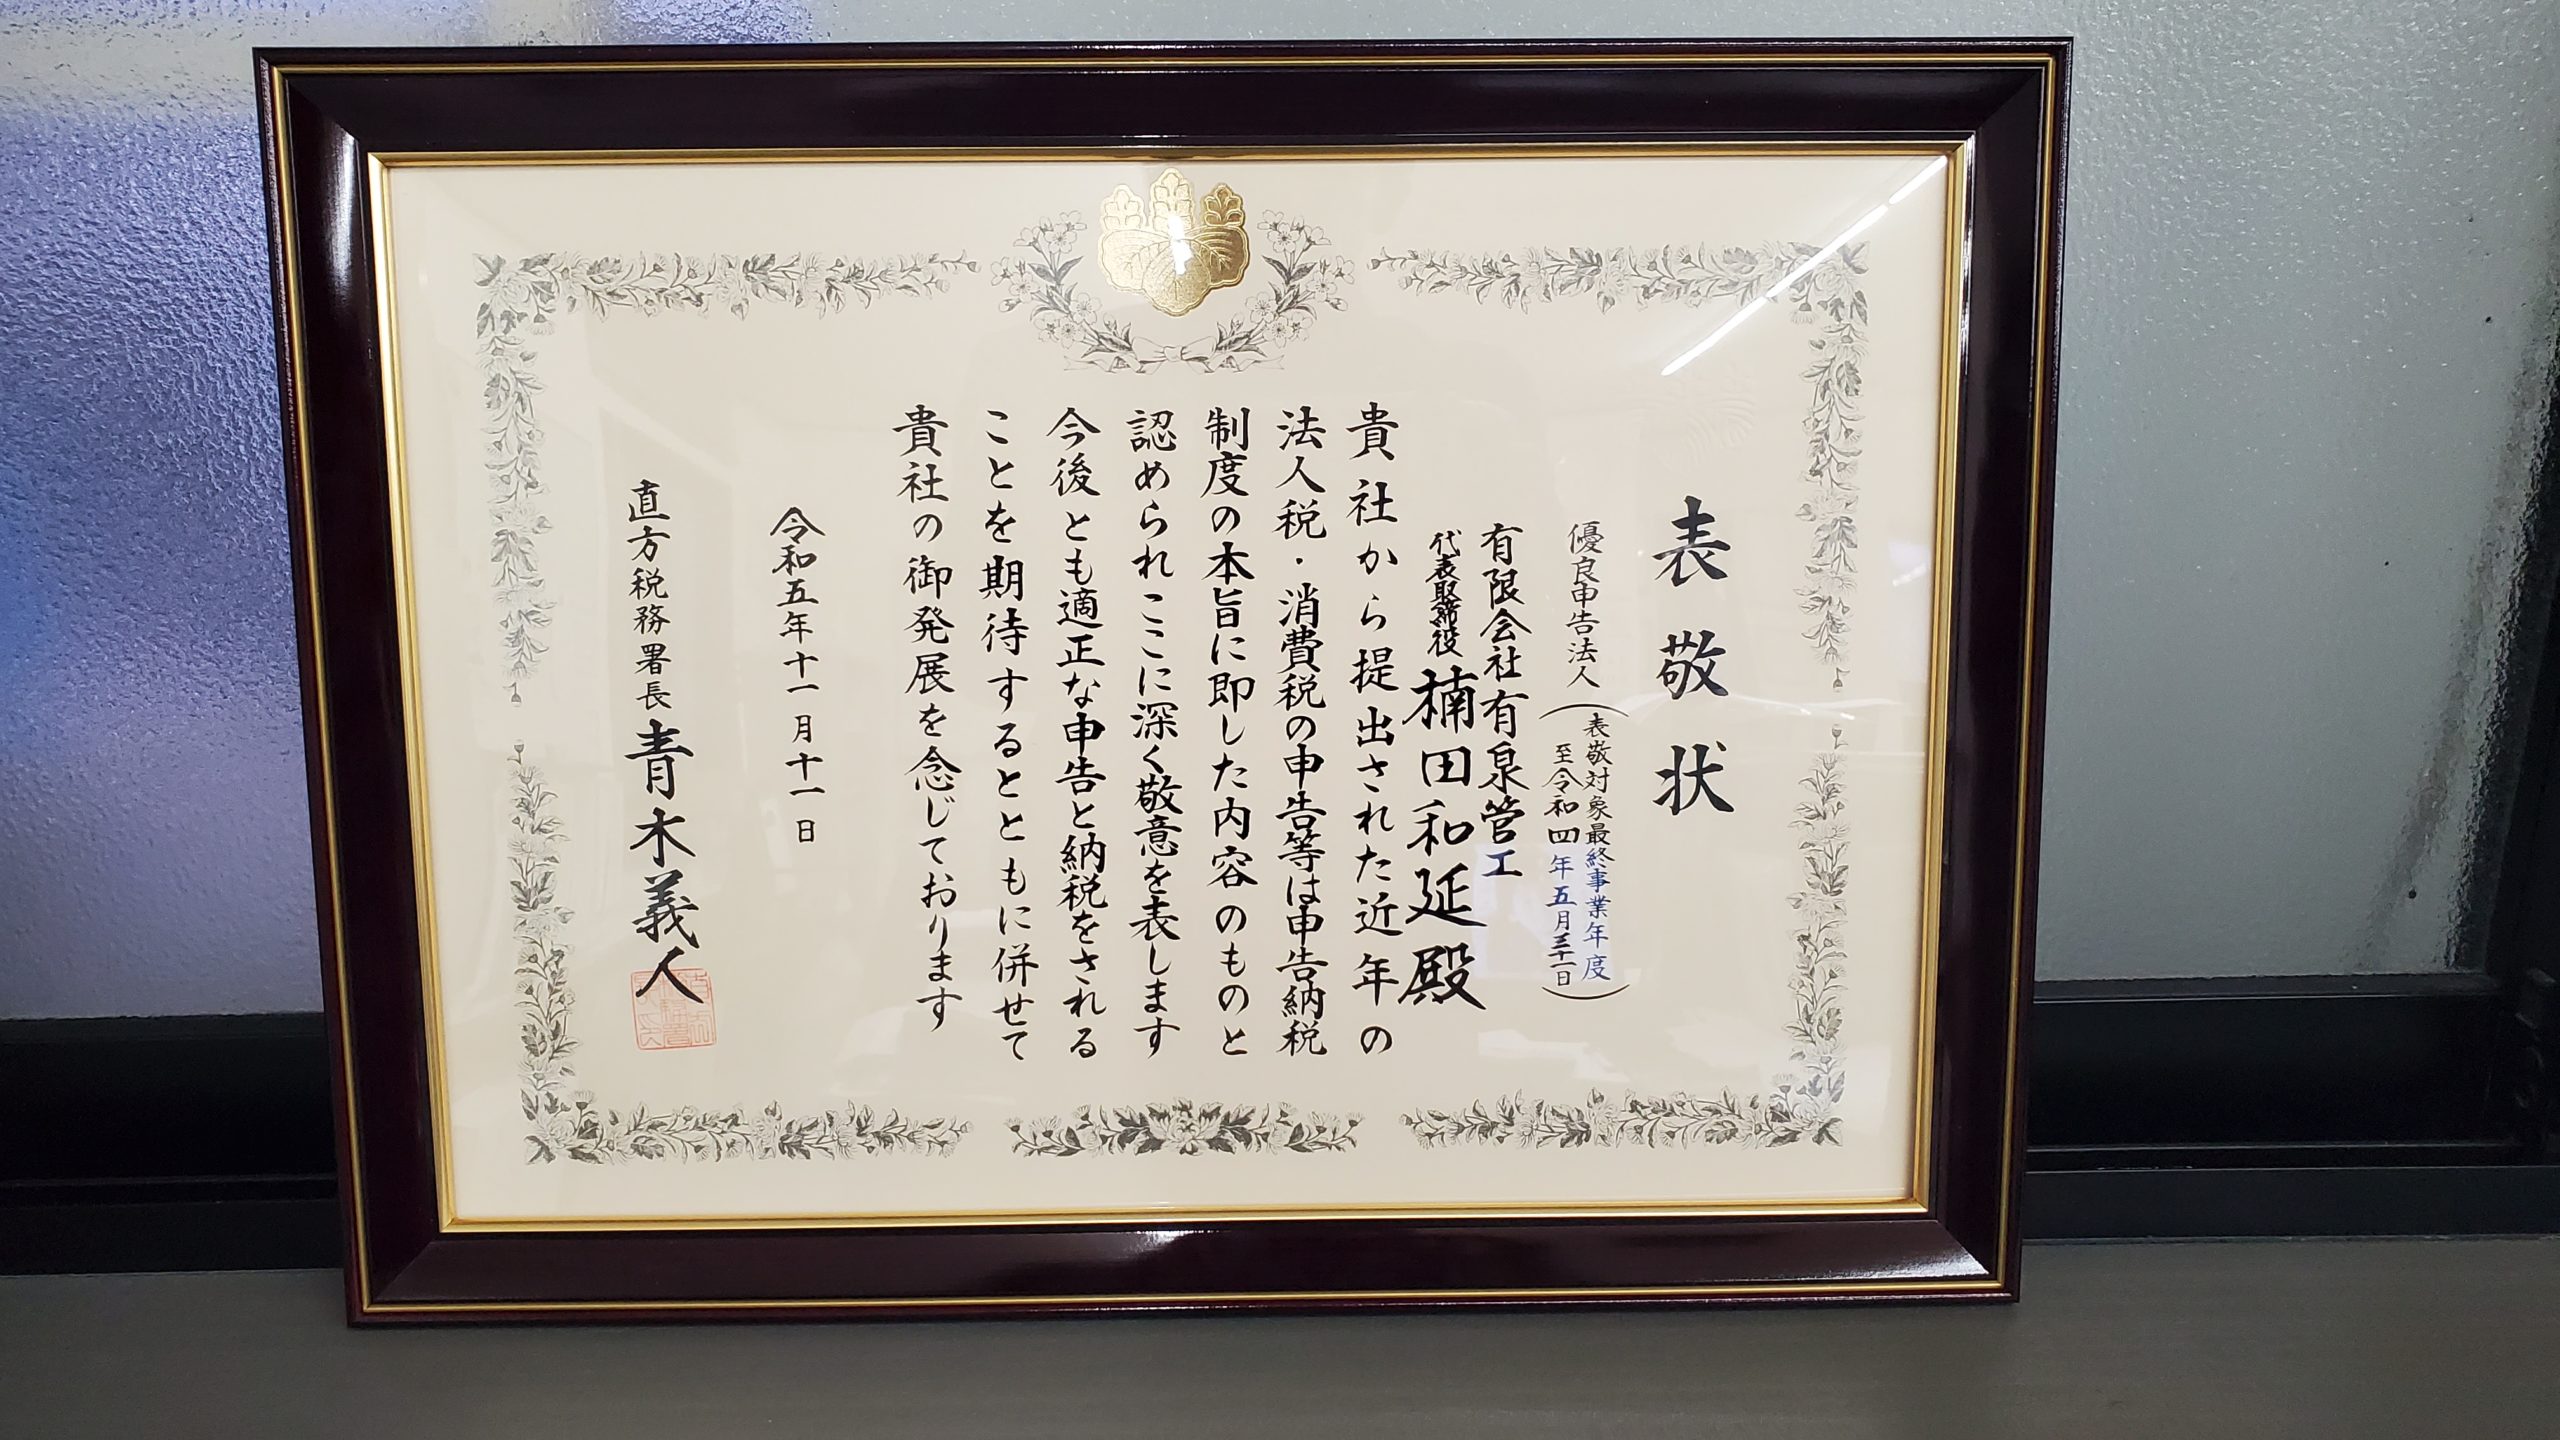 表敬状
優良申告法人
(表敬対象最終事業年度
至令和四年五月三十一日)
有限会社有泉管工
代表取締役 楠田和延殿
貴社から提出された近年の
法人税・消費税の申告等は申告納税
制度の本旨に即した内容のものと
認められここに深く敬意を表します
今後とも適正な申告と納税をされる
ことを期待するとともに併せて
貴社の御発展を念じております
令和五年十一月十一日
直方税務署長 青木義人